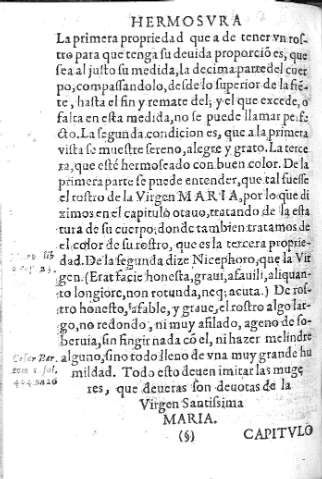 HERMOSVRA
La primera propriedad que a de tener vn ros-
tro para que tenga su deuida proporciō es, que
sea al justo su medida, la decima parte del cuer
po, compassandolo, desde lo superior de la fré-
te, hasta el fin y remate del; y el que excede, o
falta en esta medida, no se puede llamar perfe
cto. La segunda condicion es, que a la primera
vista se muestre sereno, alegre y grato. La terce
ra, que esté hermoseado con buen color. De la
primera parte se puede entender, que tal fuesse
el rostro de la Virgen MARIA, por lo que di
ximos en el capitulo otauo, tratando de la esta
tura de su cuerpo; donde tambien tratamos de
el color de su rostro, que es la tercera proprie-
dad. De la segunda dize Nicephoro, que la Vir
gen. (Erat facie honesta, graui, afauili, aliquan-
to longiore, non rotunda, neq; acuta.) De ros-
tro honesto, afable, y graue, el rostro algo lar-
go, no redondo, ni muy afilado, ageno de so-
beruia, sin fingir nada cō el, ni hazer melindre
alguno, sino todo lleno de vna muy grande hu
mildad. Todo esto deuen imitar las muge
res, que deueras son deuotas de la
Virgen Santissima
MARIA.
(§)
CAPITVLO
Cesar Bar.
tom 1. fol.